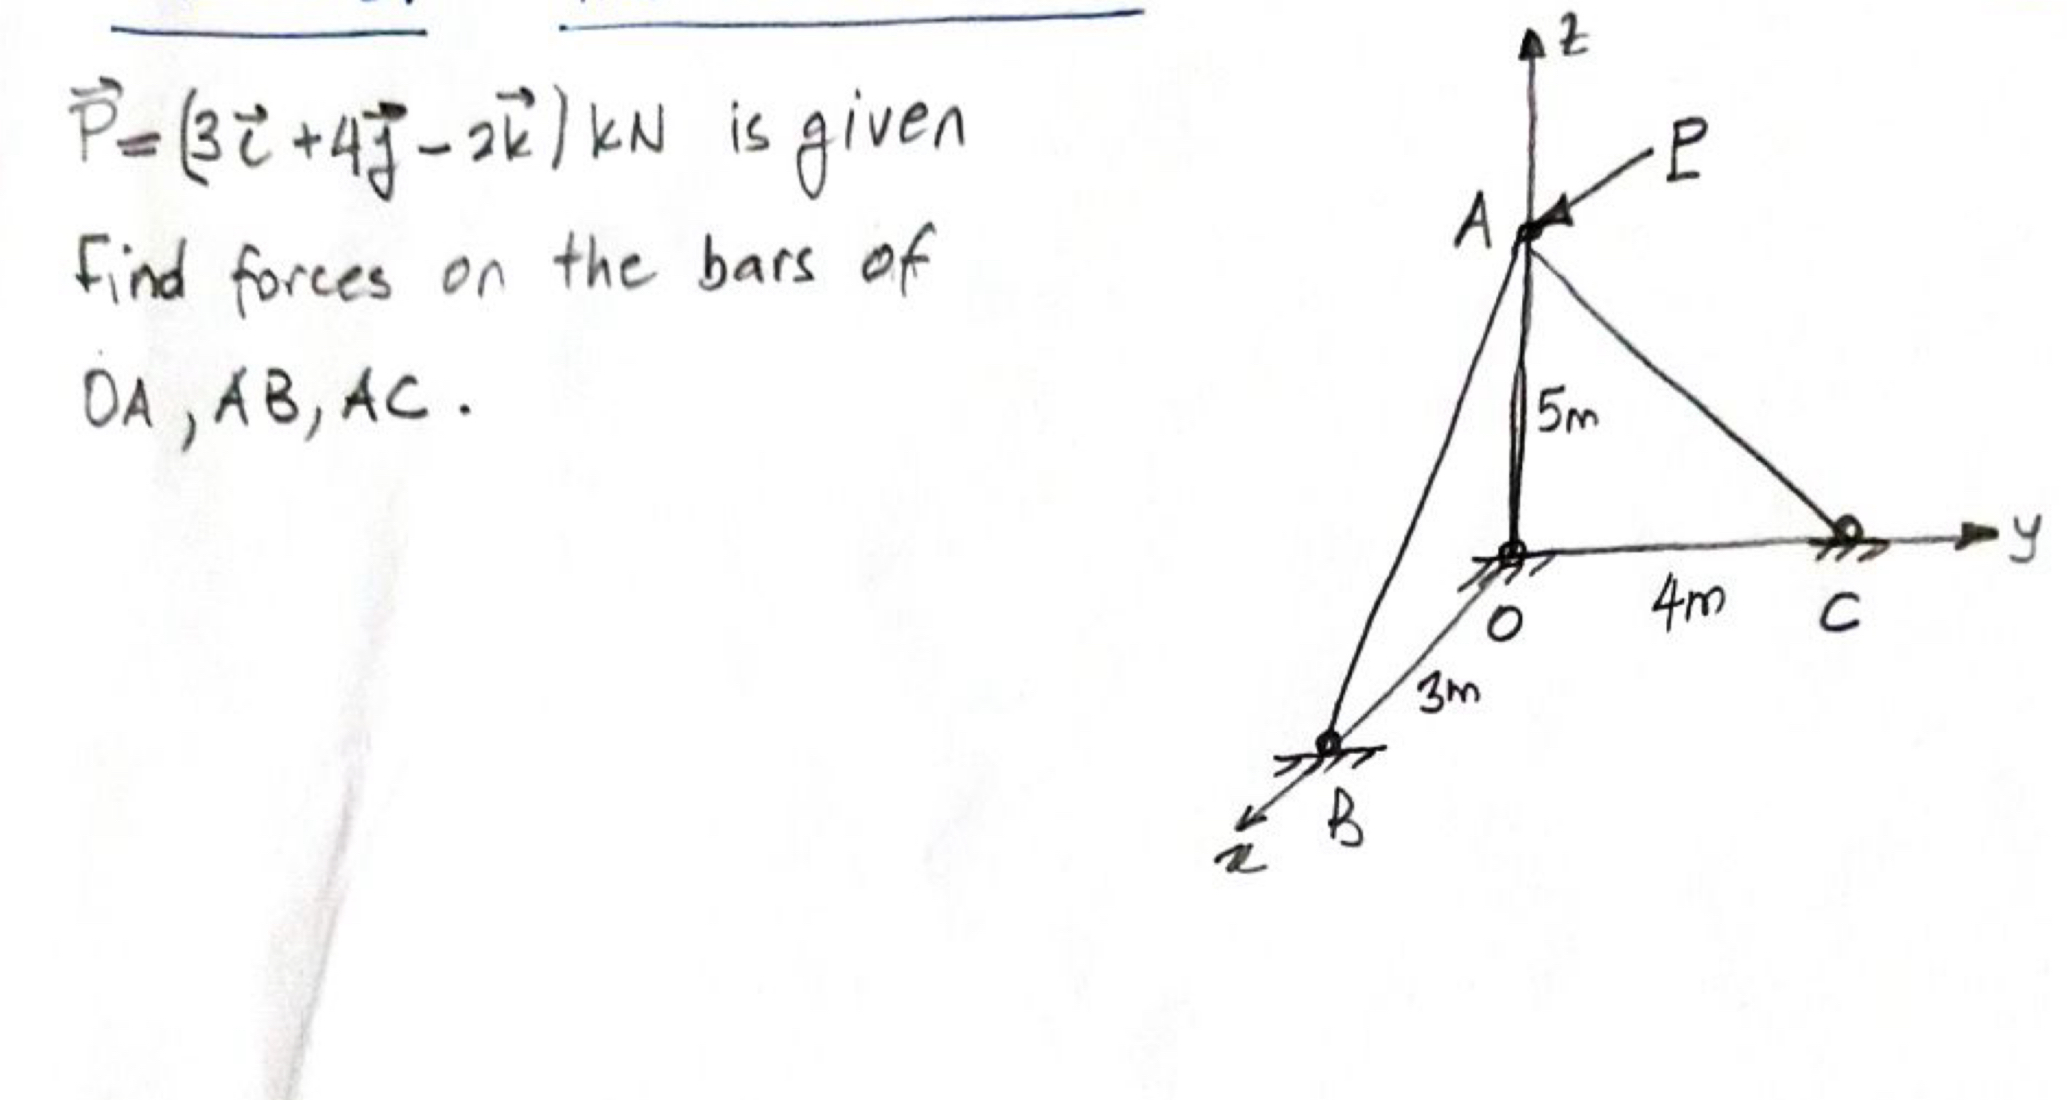 P⃗=(3i⃗+4j⃗-2k⃗)kN is given
Find forces on the bars of
OA, AB, AC.
z
P
A
5m
y
O
4m
C
3m
B
x